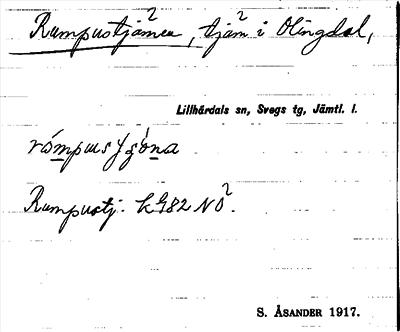 Rumpustjärnen, tjärn i Olingdal,
Lillhärdals sn, Svegs tg, Jämtl. l.
Rumpustj. KG82 NO².
S. ÅSANDER 1917.